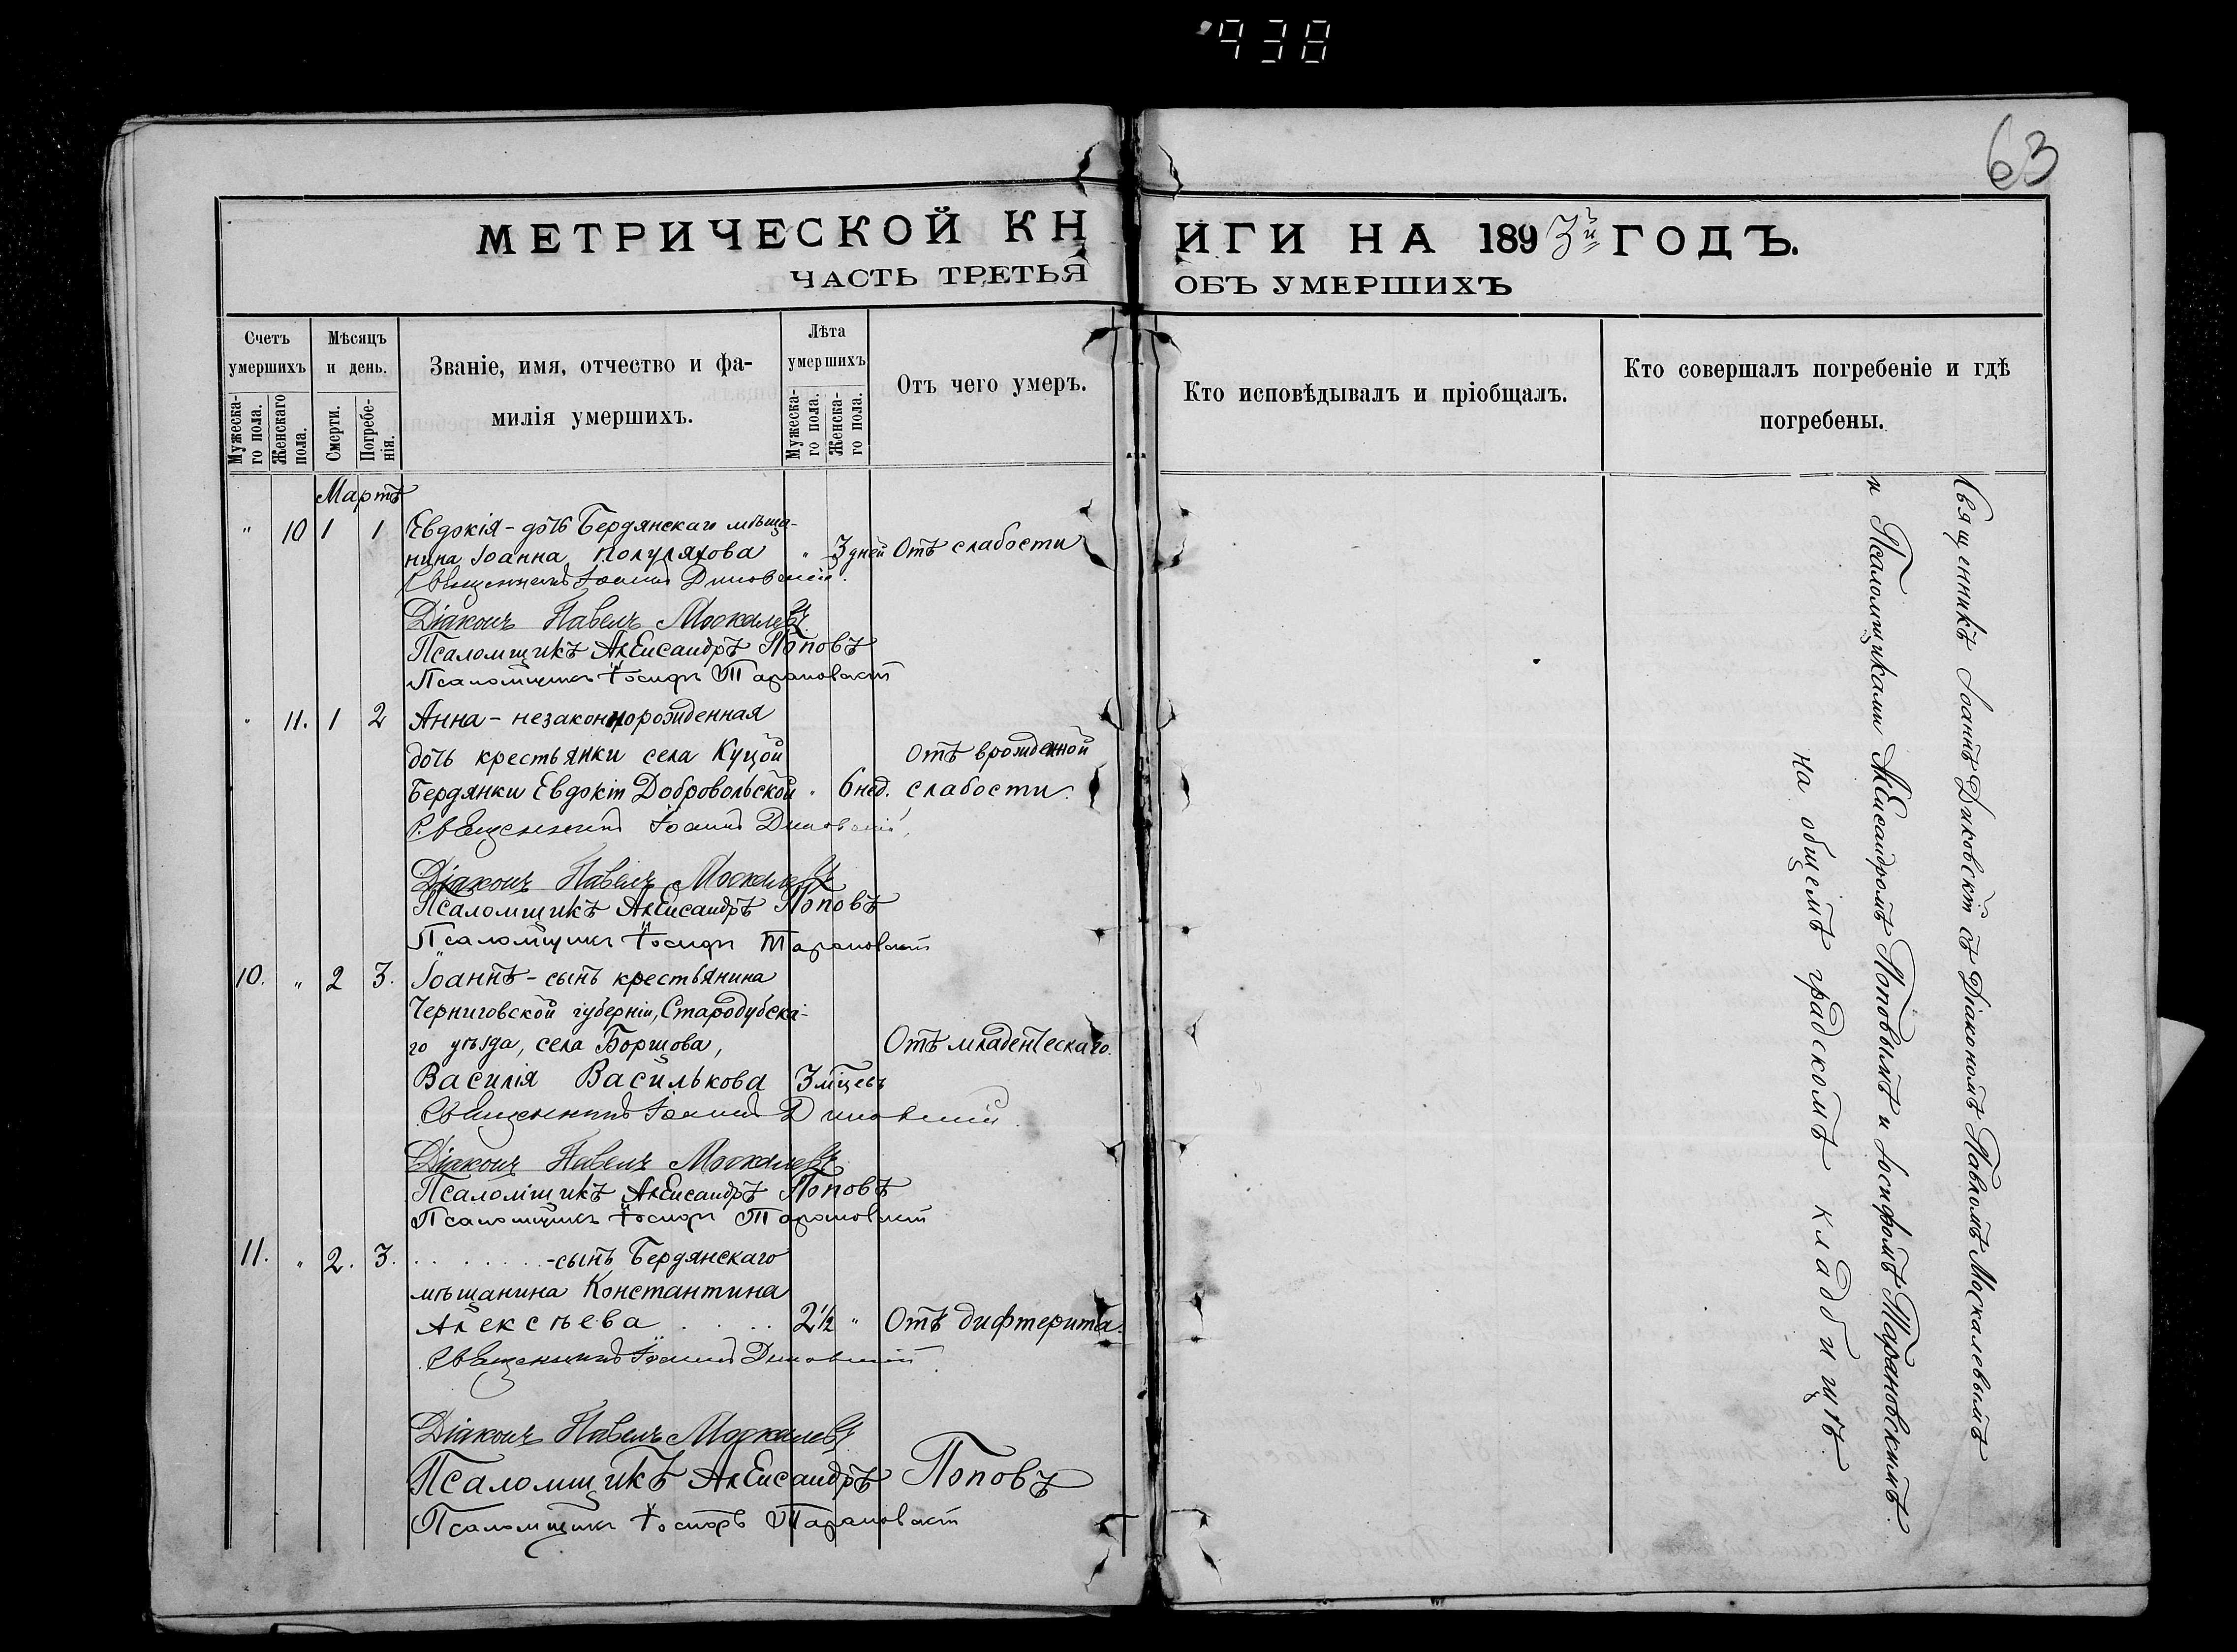 438
63
МЕТРИЧЕСКОЙ КНИГИ НА 1893й ГОДЪ.
ЧАСТЬ ТРЕТЬЯ ОБЪ УМЕРШИХЪ
Счетъ умершихъ
Мужеска-го пола.
Женскаго пола.
Мѣсяцъ и день.
Смерти.
Погребе-нія.
Званіе, имя, отчество и фа-
милія умершихъ.
Лѣта умершихъ
Мужеска-го пола.
Женска-го пола.
Отъ чего умеръ.
Кто исповѣдывалъ и пріобщалъ.
Кто совершалъ погребеніе и гдѣ
погребены.
Мартъ
" 10 1 1 Евдокія - дочь Бердянскаго мѣща-
нина Іоанна Полуляхова " 3 дней Отъ слабости
Священникъ Іоаннъ Диковскій.
Діаконъ Павелъ Москалевъ
Псаломщикъ Александръ Поповъ
Псаломщикъ Іосифъ Тарановскій
" 11. 1 2 Анна - незаконнорожденная
дочь крестьянки села Куцой Отъ врожденной
Бердянки Евдокіи Добровольской " 6 нед. слабости.
Священникъ Іоаннъ Диковскій
Діаконъ Павелъ Москалевъ
Псаломщикъ Александръ Поповъ
Псаломщикъ Іосифъ Тарановскій
10. " 2 3. Іоаннъ - сынъ крестьянина
Черниговской губерніи, Стародубска-
го уѣзда, села Борщова, Отъ младенческаго.
Василія Василькова 3 мѣцевъ
Священникъ Іоаннъ Диковскій
Діаконъ Павелъ Москалевъ
Псаломщикъ Александръ Поповъ
Псаломщикъ Іосифъ Тарановскій
11. " 2. 3. . . . . . . . - сынъ Бердянскаго
мѣщанина Константина
Алексѣева . . . 2½ " Отъ дифтерита.
Священникъ Іоаннъ Диковскій
Діаконъ Павелъ Москалевъ
Псаломщикъ Александръ Поповъ
Псаломщикъ Іосифъ Тарановскій
Священникъ Іоаннъ Диковскій съ Діакономъ Павломъ Москалевымъ
и Псаломщиками Александромъ Поповымъ и Іосифомъ Тарановскимъ.
на общемъ градскомъ кладбищѣ.